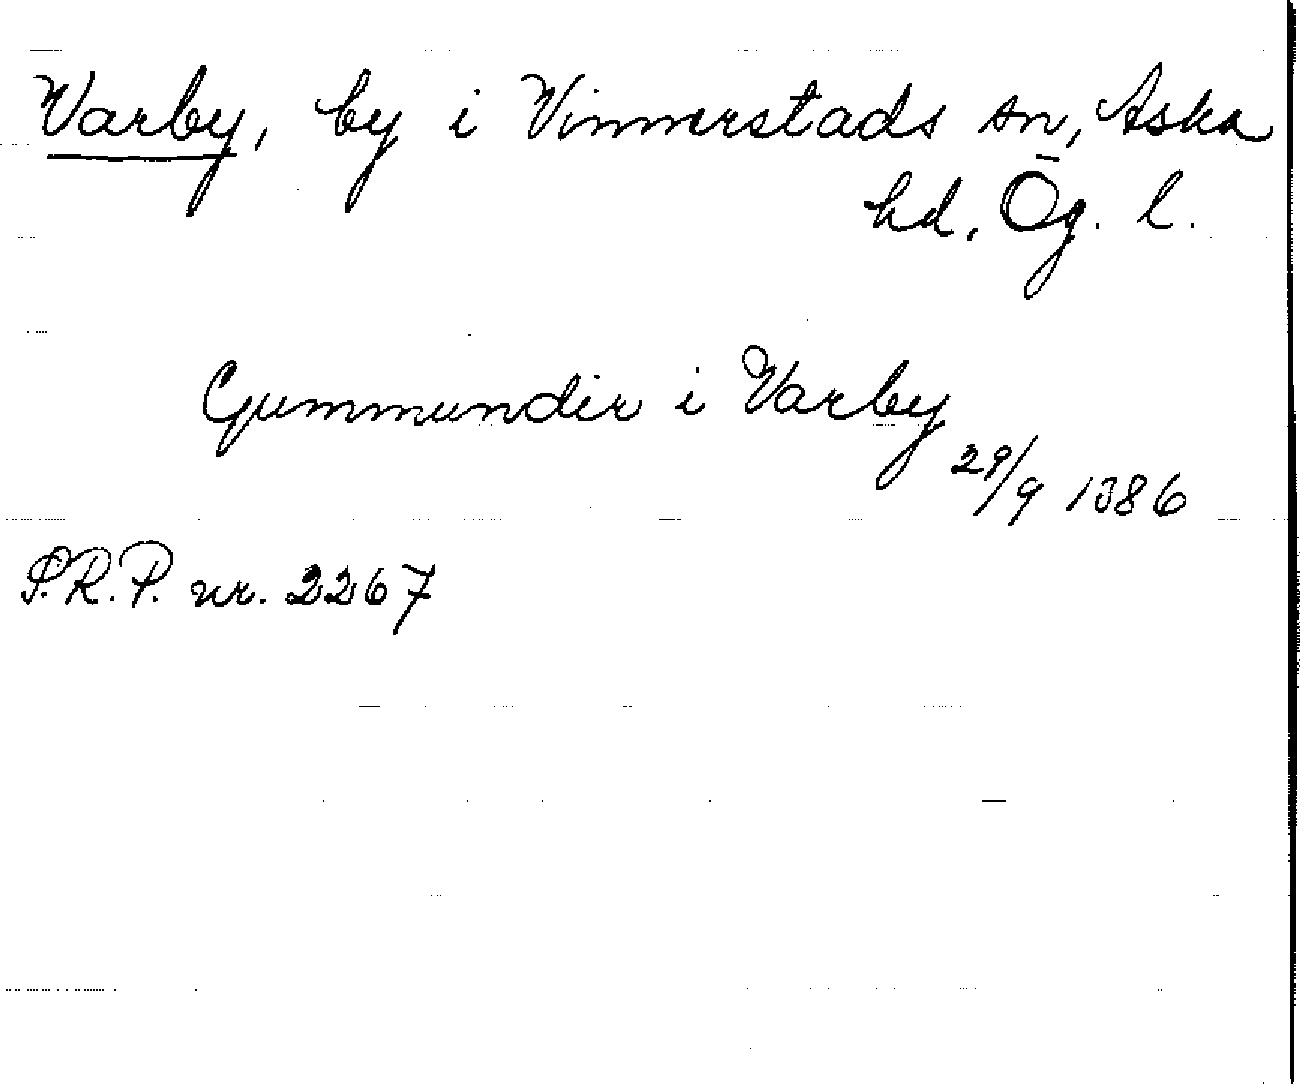 Varby, by i Vinnerstads sn, Aska
hd, Ög. l.
Gummunder i Varby
29/9 1386
S.R.P. nr. 2267